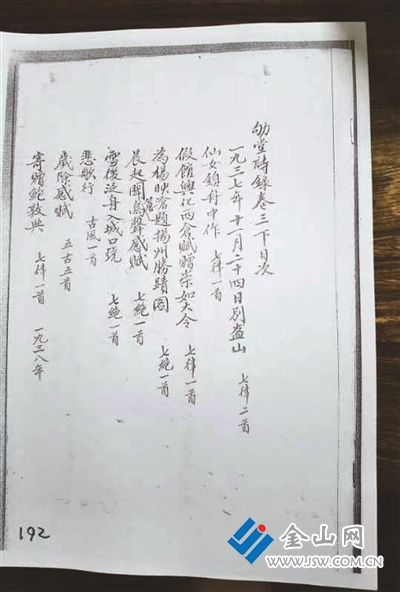 劬堂詩錄卷三下目次
一九三七年十一月二十四日別盋山 七律二首
仙女鎮舟中作 七律一首
假館興化西倉賦贈崇如大令 七律一首
為楊映滄題揚州勝蹟圖 七絕一首
晨起聞鳥聲感賦 七絕一首
雪後泛舟入城口號 七絕一首
悲歌行 古風一首
歲除感賦 五古五首
寄贈鮑敦典 七律一首 一九三八年
192
金山网
WWW.JSW.COM.CN